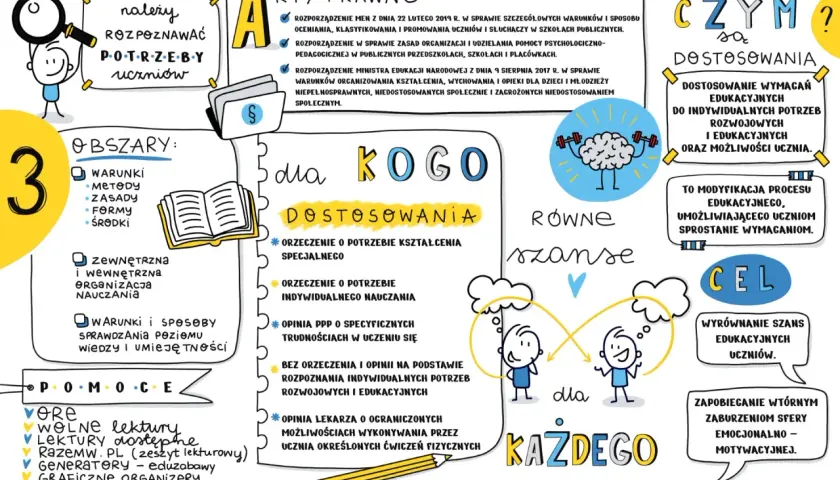 należy
ROZPOZNAWAĆ
POTRZEBY
uczniów
A
ROZPORZĄDZENIE MEN Z DNIA 22 LUTEGO 2019 R. W SPRAWIE SZCZEGÓŁOWYCH WARUNKÓW I SPOSOBU
OCENIANIA, KLASYFIKOWANIA I PROMOWANIA UCZNIÓW I SŁUCHACZY W SZKOŁACH PUBLICZNYCH.
ROZPORZĄDZENIE W SPRAWIE ZASAD ORGANIZACJI I UDZIELANIA POMOCY PSYCHOLOGICZNO-
PEDAGOGICZNEJ W PUBLICZNYCH PRZEDSZKOLACH, SZKOŁACH I PLACÓWKACH.
ROZPORZĄDZENIE MINISTRA EDUKACJI NARODOWEJ Z DNIA 9 SIERPNIA 2017 R. W SPRAWIE
WARUNKÓW ORGANIZOWANIA KSZTAŁCENIA, WYCHOWANIA I OPIEKI DLA DZIECI I MŁODZIEŻY
NIEPEŁNOSPRAWNYCH, NIEDOSTOSOWANYCH SPOŁECZNIE I ZAGROŻONYCH NIEDOSTOSOWANIEM
SPOŁECZNYM.
§
CZYM
są
?
DOSTOSOWANIA
DOSTOSOWANIE WYMAGAŃ
EDUKACYJNYCH
DO INDYWIDUALNYCH POTRZEB
ROZWOJOWYCH
I EDUKACYJNYCH
ORAZ MOŻLIWOŚCI UCZNIA.
TO MODYFIKACJA PROCESU
EDUKACYJNEGO,
UMOŻLIWIAJĄCEGO UCZNIOM
SPROSTANIE WYMAGANIOM.
CEL
WYRÓWNANIE SZANS
EDUKACYJNYCH
UCZNIÓW.
ZAPOBIEGANIE WTÓRNYM
ZABURZENIOM SFERY
EMOCJONALNO –
MOTYWACYJNEJ.
3
OBSZARY:
WARUNKI
METODY
ZASADY
FORMY
ŚRODKI
ZEWNĘTRZNA
I WEWNĘTRZNA
ORGANIZACJA
NAUCZANIA
WARUNKI I SPOSOBY
SPRAWDZANIA POZIOMU
WIEDZY I UMIEJĘTNOŚCI
dla KOGO
DOSTOSOWANIA
ORZECZENIE O POTRZEBIE KSZTAŁCENIA
SPECJALNEGO
ORZECZENIE O POTRZEBIE
INDYWIDUALNEGO NAUCZANIA
OPINIA PPP O SPECYFICZNYCH
TRUDNOŚCIACH W UCZENIU SIĘ
BEZ ORZECZENIA I OPINII NA PODSTAWIE
ROZPOZNANIA INDYWIDUALNYCH POTRZEB
ROZWOJOWYCH I EDUKACYJNYCH
OPINIA LEKARZA O OGRANICZONYCH
MOŻLIWOŚCIACH WYKONYWANIA PRZEZ
UCZNIA OKREŚLONYCH ĆWICZEŃ FIZYCZNYCH
RÓWNE
szanse
dla
KAŻDEGO
POMOCE
ORE
WOLNE lektury
LEKTURY dostępne
RAZEMW.PL (zeszyt lekturowy)
GENERATORY – eduzabawy
GRAFICZNE ORGANIZERY